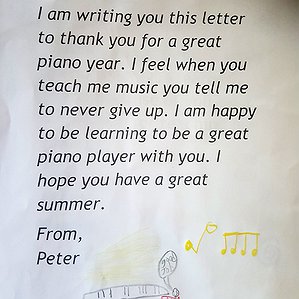 I am writing you this letter
to thank you for a great
piano year. I feel when you
teach me music you tell me
to never give up. I am happy
to be learning to be a great
piano player with you. I
hope you have a great
summer.
From,
Peter